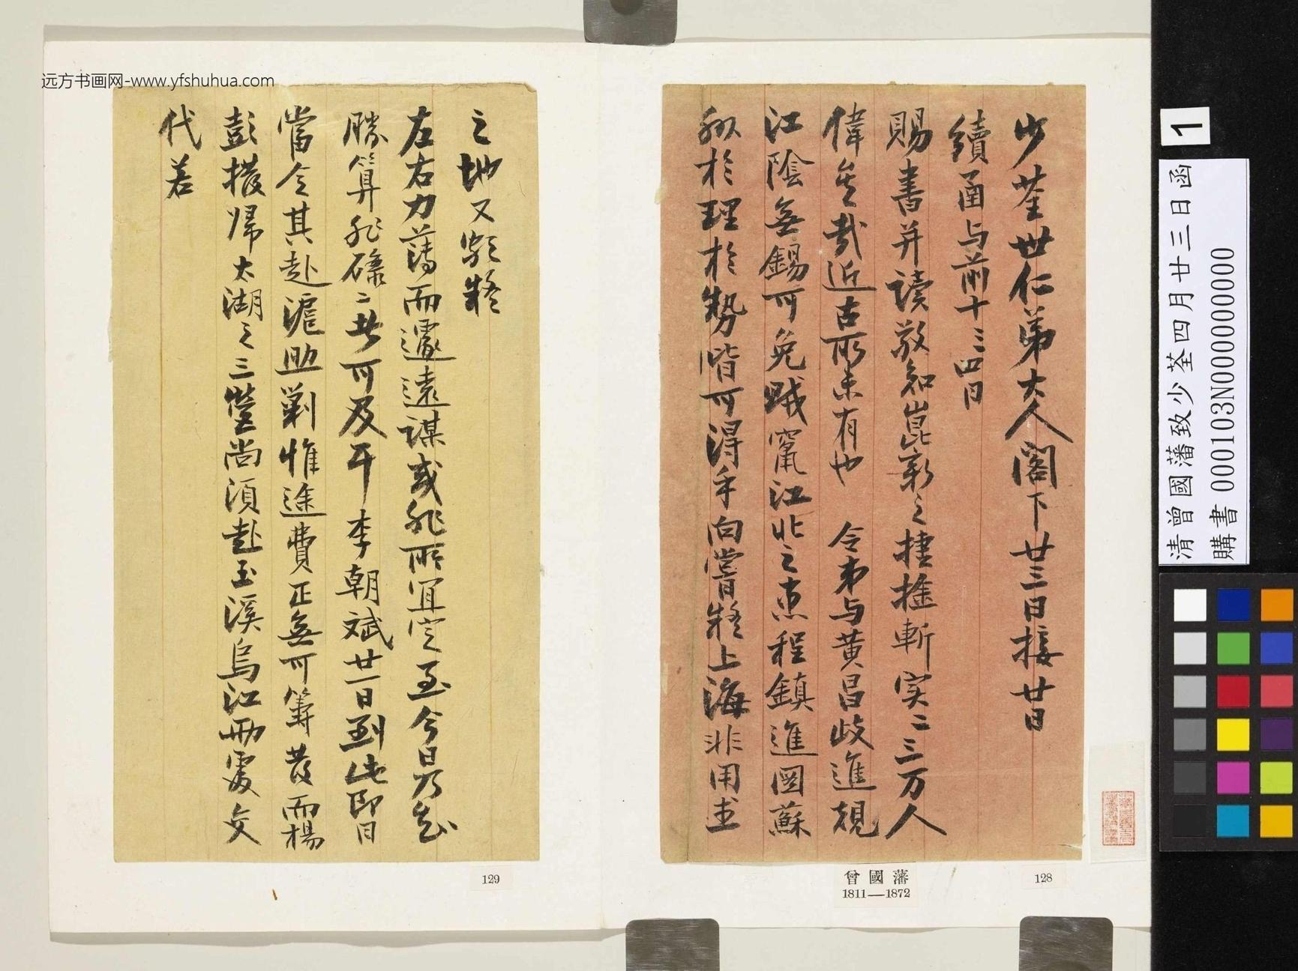 远方书画网-www.yfshuhua.com
少荃世仁弟大人閣下廿三日接廿日
續函与前十三四日
賜書并讀敬知崑新之捷擒斬实二三万人
偉矣哉近古所未有也 令弟与黃昌歧進規
江陰無錫可免賊竄江北之患程鎮進圖蘇
州於理於勢皆可得手向嘗疑上海非用武
之地又頗疑
左右力薄而遽遠謀或非所宜定至今日乃知
勝算非碌二者可及耳李朝斌廿一日到此即日
當令其赴滬助剿惟途費正無可籌發而楊
彭撥歸太湖之三營尚須赴玉溪烏江兩處交
代若
129
曾國藩
1811—1872
128
1
清曾國藩致少荃四月廿三日函
購書 000103N000000000